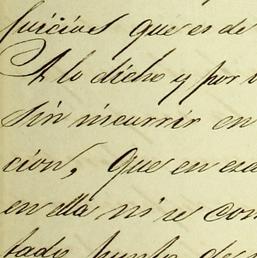 juicios que es de
A lo dicho y por
sin incurrir en
cion, Que en esa
en ella ni se con
tado punto de